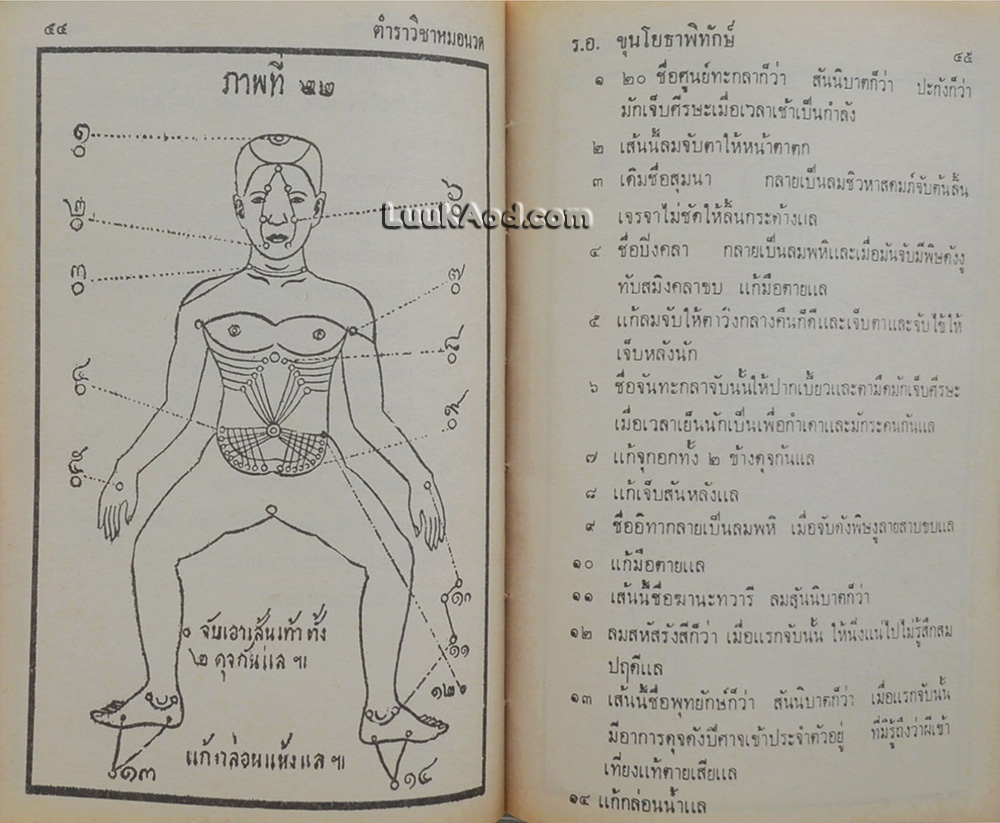 ๕๔
ตำราวิชาหมอนวด
ภาพที่ ๒๒
๐๑
๐๒
๐๓
๐๗
LuukAod.com
จับเอาเส้นเท้า ทั้ง
๒ ดุจกันแล ฯ
แก้กล่อนแห้งแล ฯ
๑๐
๑๑
๑๒
๑๓
๑๔
ร.อ. ขุนโยธาพิทักษ์
๔๕
๑ ๒๐ ชื่อศูนย์ทะกลาก็ว่า สันนิบาตก็ว่า ปะกังก็ว่า
มักเจ็บศีรษะเมื่อเวลาเช้าเป็นกำลัง
๒ เส้นนี้ลมจับตาให้หน้าตาตก
๓ เดิมชื่อสุมนา กลายเป็นลมชิวหาสดมภ์จับต้นลิ้น
เจรจาไม่ชัดให้ลิ้นกระด้างแล
๔ ชื่อปิงคลา กลายเป็นลมพหิและเมื่อมันจับมีพิษดังงู
ทับสมิงคลาขบ แก้มือตายแล
๕ แก้ลมจับให้ตาวิงกลางคืนก็ดีและเจ็บตาและจับไข้ให้
เจ็บหลังนัก
๖ ชื่อจันทะกลาจับนั้นให้ปากเบี้ยวและตามืดมักเจ็บศีรษะ
เมื่อเวลาเย็นนักเป็นเพื่อกำเดาและมักระคนกันแล
๗ แก้จุกอกทั้ง ๒ ข้างดุจกันแล
๘ แก้เจ็บสันหลังแล
๙ ชื่ออิทากลายเป็นลมพหิ เมื่อจับดังพิษงูลายสาบขบแล
๑๐ แก้มือตายแล
๑๑ เส้นนี้ชื่อฆานะทวารี ลมสันนิบาตก็ว่า
๑๒ ลมสหัสรังสีก็ว่า เมื่อแรกจับนั้น ให้นิ่งแน่ไปไม่รู้สึกสม
ปฤดีแล
๑๓ เส้นนี้ชื่อพุทยักษ์ก็ว่า สันนิบาตก็ว่า เมื่อแรกจับนั้น
มีอาการดุจดังปีศาจเข้าประจำตัวอยู่ ที่มิรู้ถึงว่าผีเข้า
เที่ยงแท้ตายเสียแล
๑๔ แก้กล่อนน้ำแล